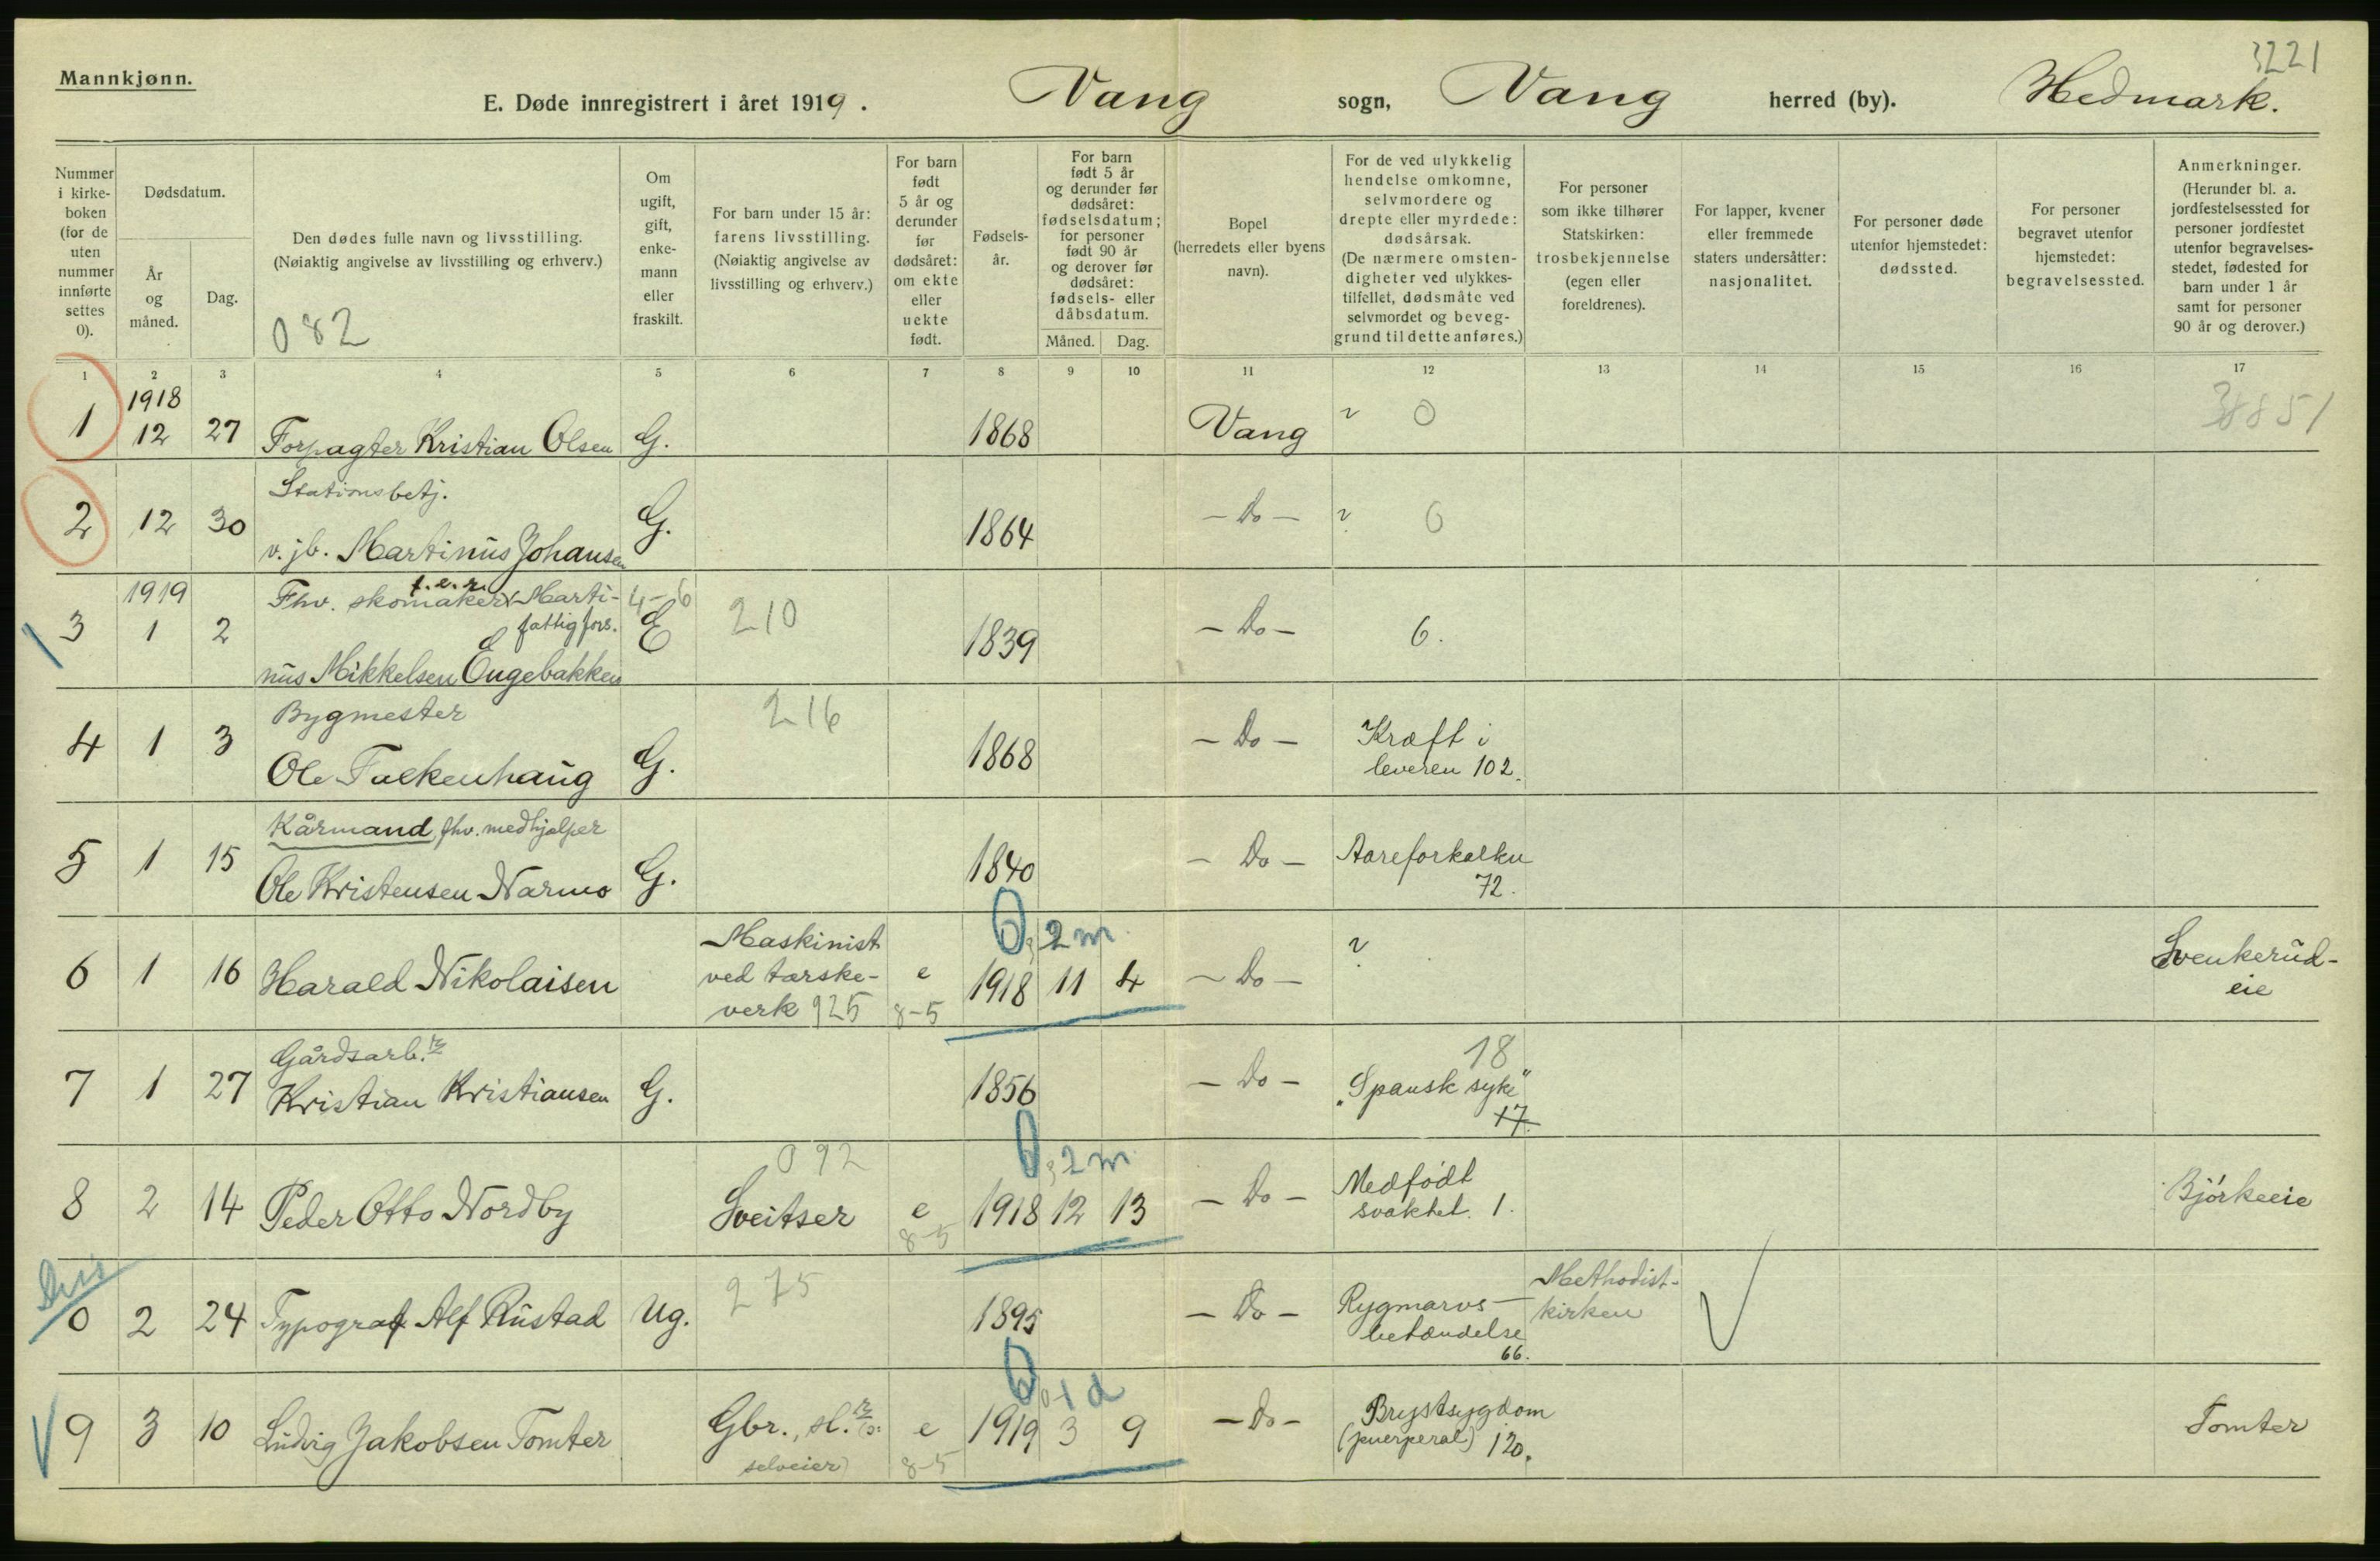 3221
Mannkjønn.
E. Døde innregistrert i året 1919. Vang sogn, Vang herred (by). Hedmark.
Nummer i kirke-boken (for de uten nummer innførte settes 0).
Dødsdatum.
År og måned.
Dag.
Den dødes fulle navn og livsstilling.
(Nøiaktig angivelse av livsstilling og erhverv.)
082
Om ugift, gift, enke-mann eller fraskilt.
For barn under 15 år: farens livsstilling. (Nøiaktig angivelse av livsstilling og erhverv.)
For barn født 5 år og derunder før dødsåret: om ekte eller uekte født.
Fødsels-år.
For barn født 5 år og derunder før dødsåret: fødselsdatum; for personer født 90 år og derover før dødsåret: fødsels- eller dåbsdatum.
Måned. Dag.
Bopel (herredets eller byens navn).
For de ved ulykkelig hendelse omkomne, selvmordere og drepte eller myrdede: dødsårsak. (De nærmere omsten-digheter ved ulykkes-tilfellet, dødsmåte ved selvmordet og beveg-grund til dette anføres.)
For personer som ikke tilhører Statskirken: trosbekjennelse (egen eller foreldrenes).
For lapper, kvener eller fremmede staters undersåtter: nasjonalitet.
For personer døde utenfor hjemstedet: dødssted.
For personer begravet utenfor hjemstedet: begravelsessted.
Anmerkninger. (Herunder bl. a. jordfestelsessted for personer jordfestet utenfor begravelses-stedet, fødested for barn under 1 år samt for personer 90 år og derover.)
1 2 3 4 5 6 7 8 9 10 11 12 13 14 15 16 17
1918
1 12 27 Forpagter Kristian Olsen G. 1868 Vang ? 0
Stationsbetj.
2 12 30 v. jb. Martinus Johansen G. 1864 - Do - ? 0
1919 f.e.r. 4-6
Fhv. skomaker Marti-
fattigfors.
3 1 2 nus Mikkelsen Engebakken E 210 1839 - Do - 6.
Bygmester 216
4 1 3 Ole Falkenhaug G. 1868 - Do - Kræft i
leveren 102.
Kårmand, fhv. medhjelper
5 1 15 Ole Kristensen Narmo G. 1840 - Do - Aareforkalkn
72.
0, 2 m
6 1 16 Harald Nikolaisen Maskinist
ved tærske-
verk 925 e 8-5 1918 11 4 - Do - ? Svenkerud-
eie
Gårdsarb. 18
7 1 27 Kristian Kristiansen G. 1856 - Do - „Spansk syke"
17.
092 0, 2 m
8 2 14 Peder Otto Nordby Sveitser e 8-5 1918 12 13 - Do - Medfødt
svakhet. 1. Bjørkeeie
275
0 2 24 Typograf Alf Rustad Ug. 1895 - Do - Rygmarvs-
betændelse
66. Methodist-
kirken
0, 1 d
9 3 10 Ludvig Jakobsen Tomter Gbr., sl. (ɔ:
selveier) e 8-5 1919 3 9 - Do - Brystsygdom
(puerperal) 120. Tomter